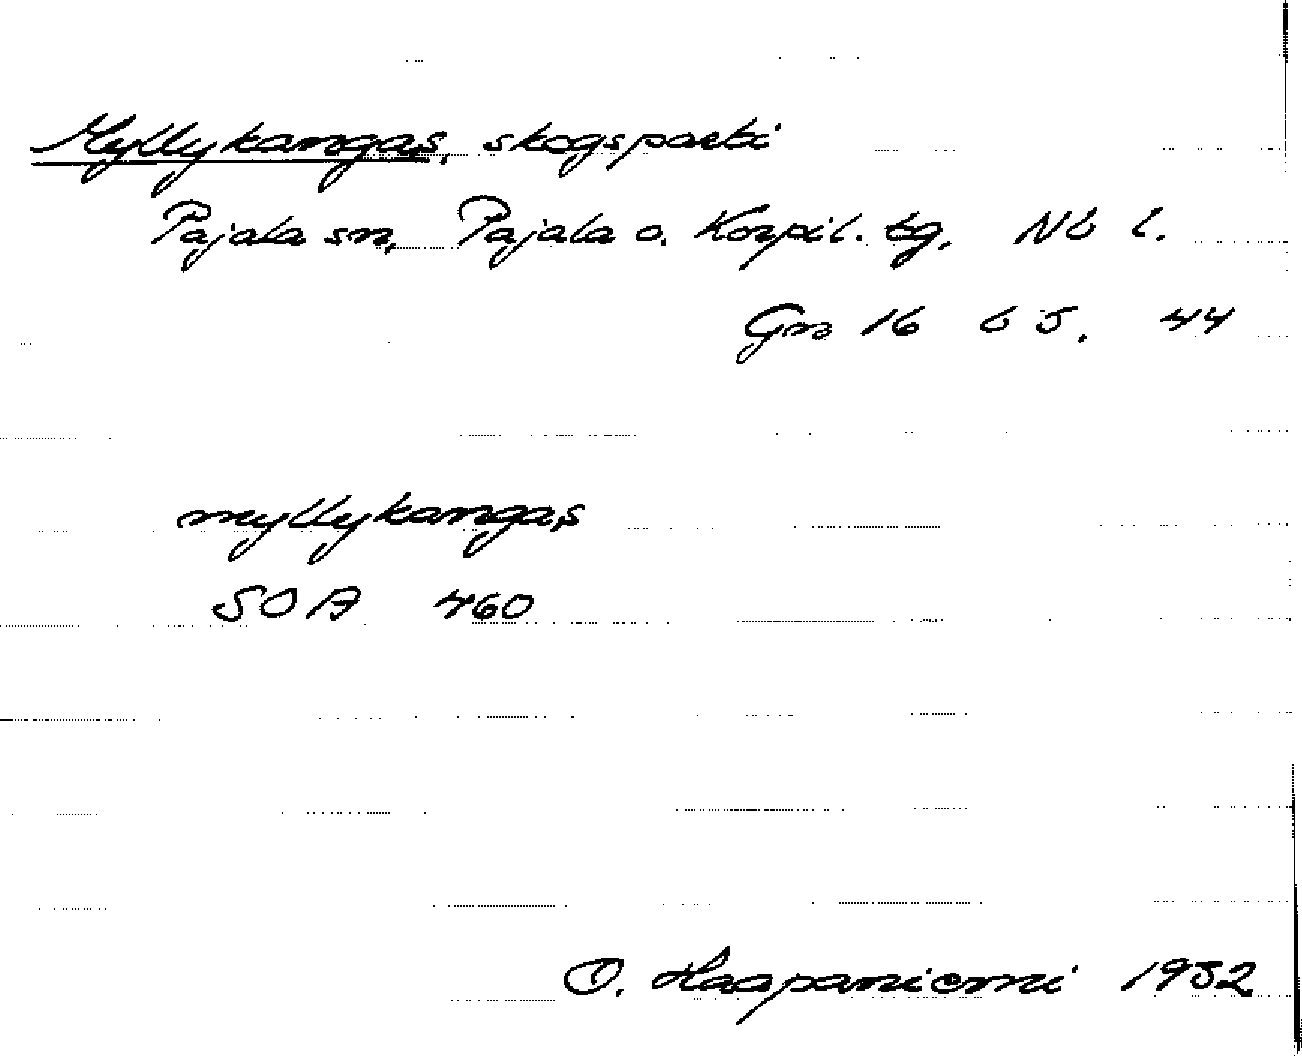 Myllykangas, skogsparti
Pajala sn, Pajala o. Korpil. tg, Nb l.
Gn 16 b 5. 44
myllykangas
SOA 460
O. Haapaniemi 1952